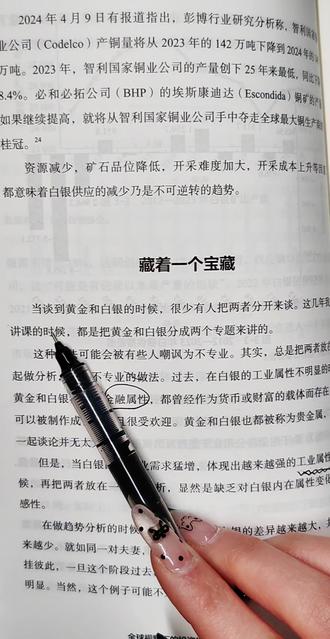 2024 年 4 月 9 日有报道指出，彭博行业研究分析称，智利国
业公司（Codelco）产铜量将从 2023 年的 142 万吨下降到 2024 年的
万吨。2023 年，智利国家铜业公司的产量创下 25 年来最低，同比下
8.4%。必和必拓公司（BHP）的埃斯康迪达（Escondida）铜矿的产
如果继续提高，就将从智利国家铜业公司手中夺走全球最大铜生产
桂冠。24
资源减少，矿石品位降低，开采难度加大，开采成本上升等
都意味着白银供应的减少乃是不可逆转的趋势。
藏着一个宝藏
当谈到黄金和白银的时候，很少有人把两者分开来谈。这几年我
讲课的时候，都是把黄金和白银分成两个专题来讲的。
这种 可能会被有些人嘲讽为不专业。其实，总是把两者放
起做分析 不专业的做法。过去，在白银的工业属性不明显的
黄金和白银 金融属性，都曾经作为货币或财富的载体而存在
可以被制作成 很受欢迎。黄金和白银也都被称为贵金属，
一起谈论并无太
但是，当白银 业需求猛增，体现出越来越强的工业属性
候，再把两者放在一 析，显然是缺乏对白银内在属性变化
感性。
在做趋势分析的时候 银的差异越来越大，
来越少。就如同一对夫妻，
挂彼此，一旦这个阶段过去
明显。当然，这个例子可能不